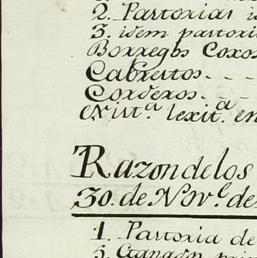 2. Partorias
3. idem partori
Borregos Coxos
Cabritos
Corderos
en
Razon de los
30. de Nov.e de
1. Partoria de